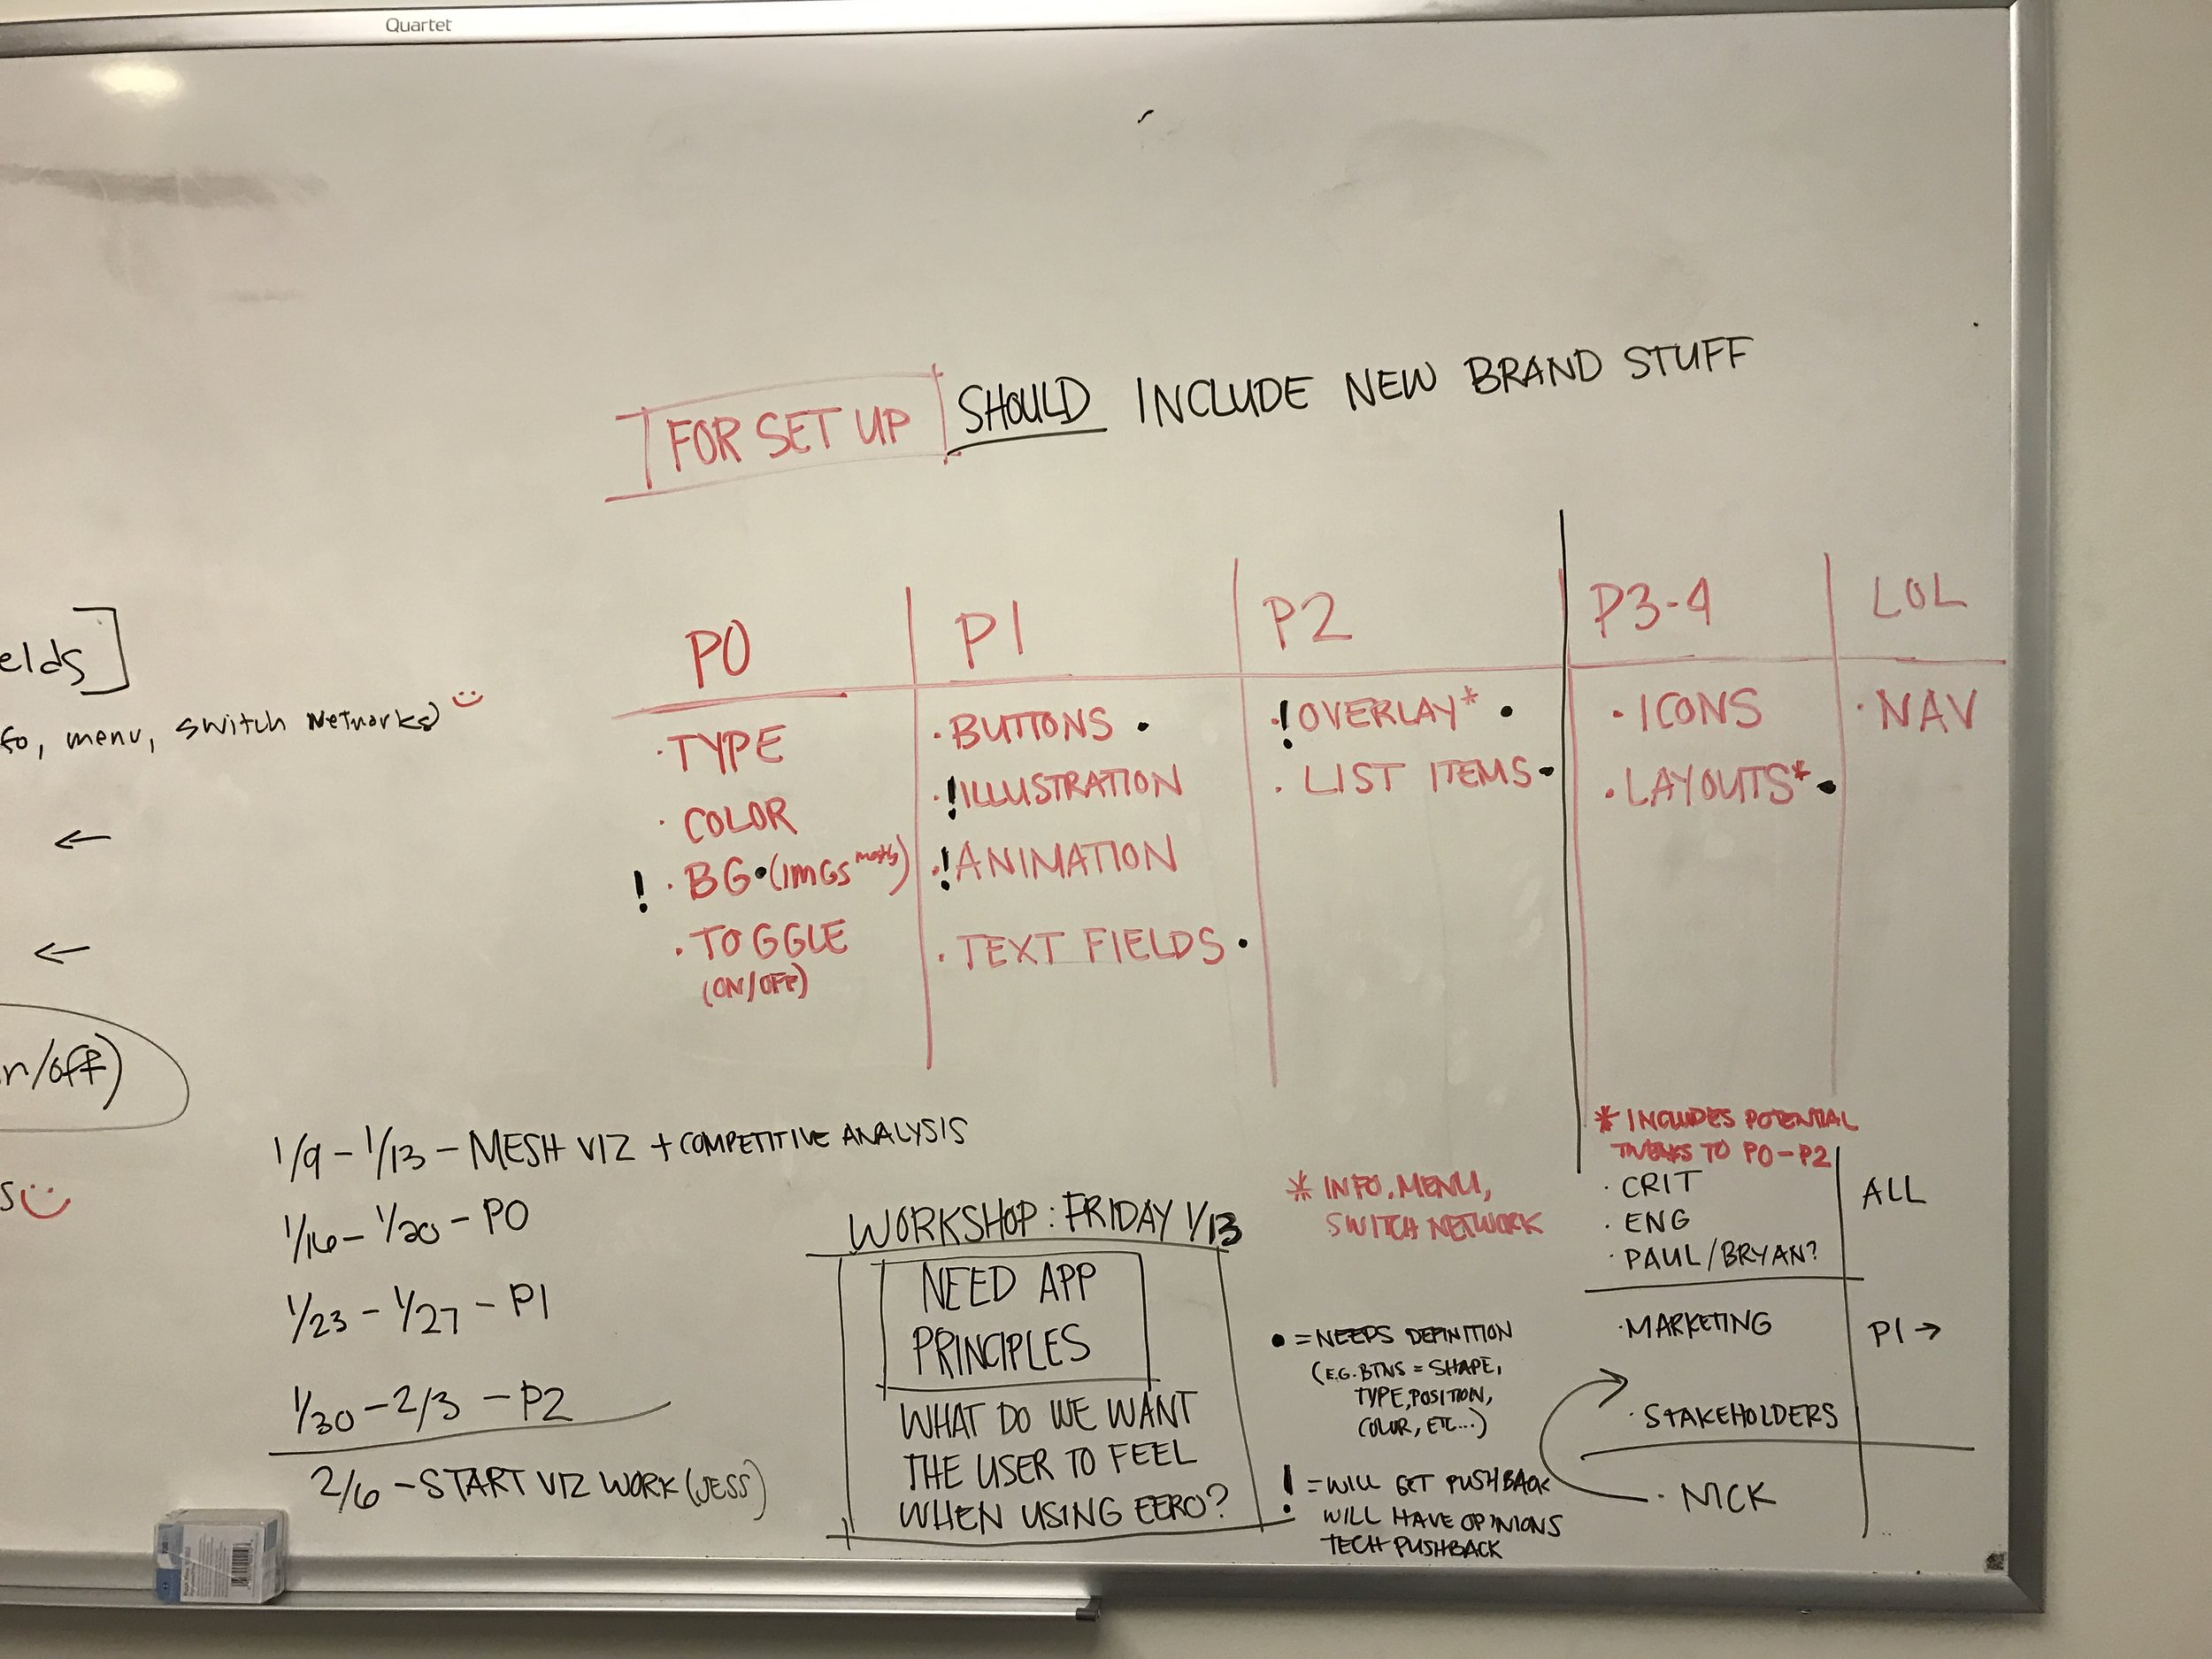 Quartet
FOR SET UP SHOULD INCLUDE NEW BRAND STUFF
elds]
fo, menu, switch Networks)
←
←
n/off)
s
P0
· TYPE
· COLOR
! · BG • (IMGS mostly)
· TOGGLE
(ON/OFF)
P1
· BUTTONS •
· ! ILLUSTRATION
· ! ANIMATION
· TEXT FIELDS •
P2
· ! OVERLAY* •
· LIST ITEMS •
P3-4
· ICONS
· LAYOUTS* •
LOL
· NAV
1/9 - 1/13 - MESH VIZ + COMPETITIVE ANALYSIS
1/16 - 1/20 - P0
1/23 - 1/27 - P1
1/30 - 2/3 - P2
2/6 - START VIZ WORK (JESS)
WORKSHOP: FRIDAY 1/13
NEED APP
PRINCIPLES
WHAT DO WE WANT
THE USER TO FEEL
WHEN USING EERO?
* INFO, MENU,
SWITCH NETWORK
• = NEEDS DEFINITION
(E.G. BTNS = SHAPE,
TYPE, POSITION,
COLOR, ETC...)
! = WILL GET PUSHBACK
WILL HAVE OPINIONS
TECH PUSHBACK
* INCLUDES POTENTIAL
TWEAKS TO P0-P2
· CRIT
· ENG
· PAUL/BRYAN?
ALL
· MARKETING
· STAKEHOLDERS
P1 →
· NICK